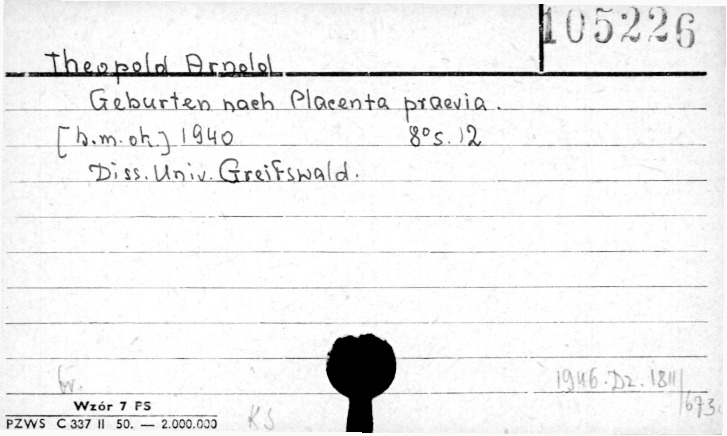 105226
Theopold Arnold
Geburten nach Placenta praevia.
[b.m.ok.] 1940 8° s. 12
Diss. Univ. Greifswald.
1946. Dz. 1811/673.
Wzór 7 FS
PZWS C 337 II 50. — 2.000.000
KS